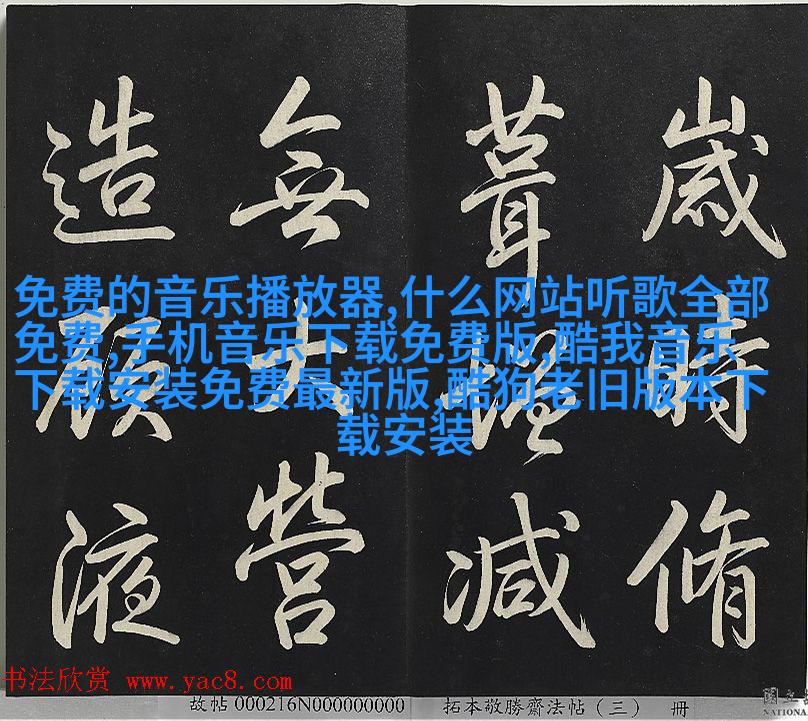 歲時脩
葺減
無大營
造顧液
免费的音乐播放器,什么网站听歌全部
免费,手机音乐下载免费版,酷我音乐
下载安装免费最新版,酷狗老旧版本下
载安装
书法欣赏 www.yac8.com
故帖 000216N000000000 拓本敬勝齋法帖（三） 册
國立
NATIONA